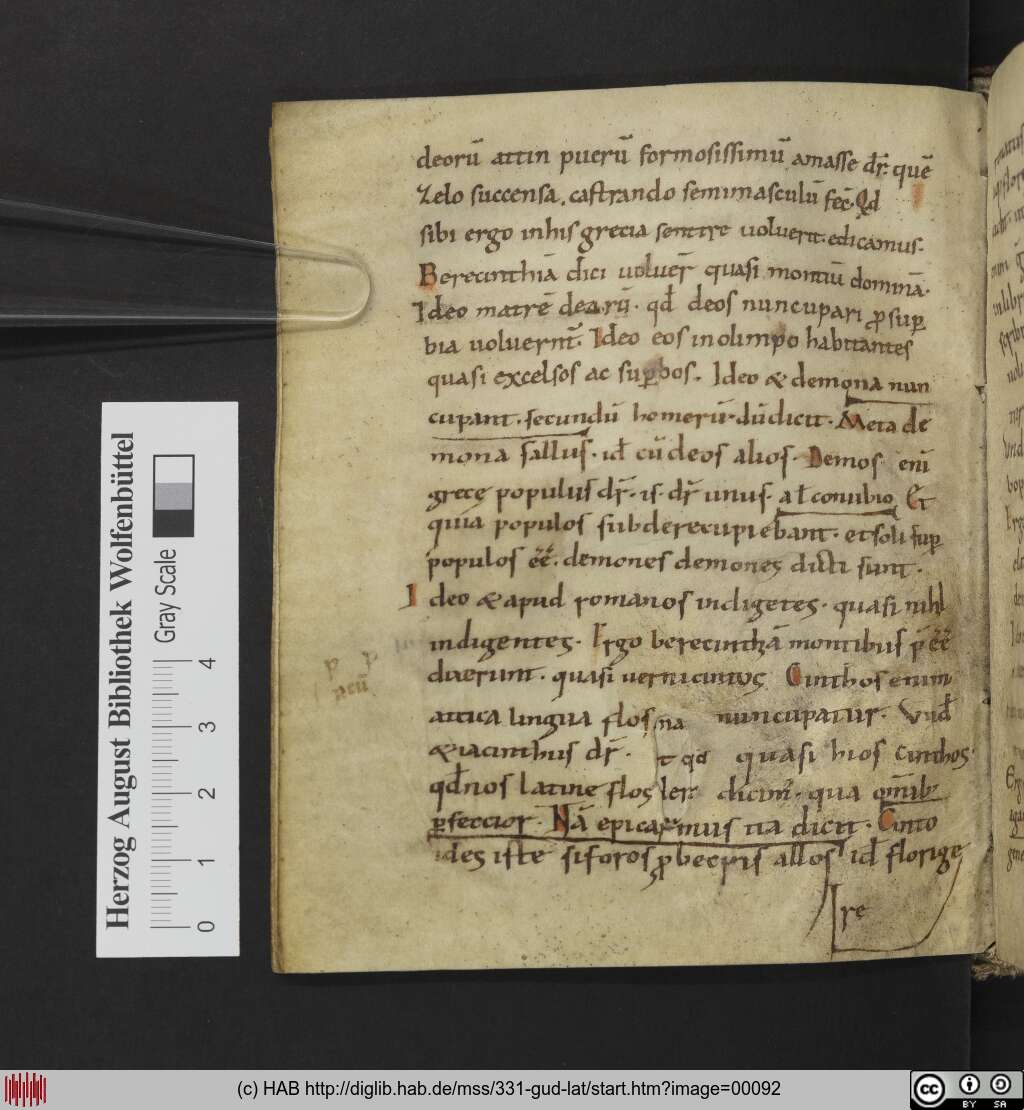 deorū attin puerū formosissimū amasse dr̄. quē
zelo succensa. castrando semimasculū fec̄. Qd
sibi ergo inhis grecia sentire uoluerit. edicamus.
Berecinthiā dici uoluer̄ quasi montiū dominā.
Ideo matrē deorū. qd̄ deos nuncupari ꝓ suꝑ
bia uoluerūt. Ideo eos inolimpo habitantes
quasi excelsos ac suꝑbos. Ideo & demona nun
cupant. secundū homerū. dū dicit. Meta de
mona sallus. id̄ cū deos alios. Demos enī
grecę populus dr̄. is dr̄ unus. al conubio Et
quia populos sub de re cupiebant. et soli suꝑ
populos ēē. demones demones dicti sunt.
Ideo & apud romanos indigetes. quasi nihl
indigentes. Ergo berecinthiā montibus p̄ēē
dixerunt. quasi uerni cintos Cinthos enim
attica lingua flos nuncupatur. Vnd̄
na
& iacinthus dr̄. quasi hios cinthos
t qd
qd̄ nos latine flos dicim̄. qua omīb;
ler
ꝑfectior. Nā epicarmus ita dicit. Cinto
ides iste siforos ꝓbecpis allos id̄ florige
re
p p
ncū
Herzog August Bibliothek Wolfenbüttel
Gray Scale
0 1 2 3 4
(c) HAB http://diglib.hab.de/mss/331-gud-lat/start.htm?image=00092
cc BY SA